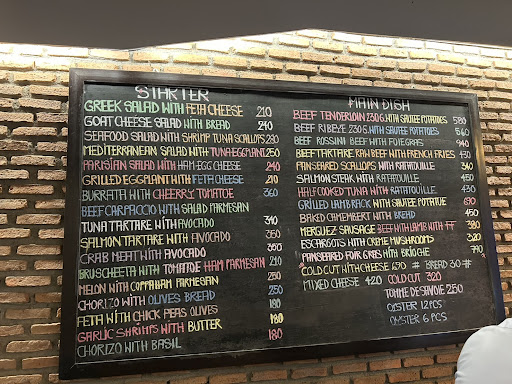 STARTER
GREEK SALAD WITH FETA CHEESE 210
GOAT CHEESE SALAD WITH BREAD 240
SEAFOOD SALAD WITH SHRIMP TUNA SCALLOPS 280
MEDITERRANEAN SALAD WITH TUNA EGGPLANT 250
PARISIAN SALAD WITH HAM EGG CHEESE 240
GRILLED EGGPLANT WITH FETA CHEESE 210
BURRATA WITH CHERRY TOMATOE 360
BEEF CARPACCIO WITH SALAD PARMESAN
TUNA TARTARE WITH AVOCADO 340
SALMON TARTARE WITH AVOCADO 350
CRAB MEAT WITH AVOCADO 350
BRUSCHETTA WITH TOMATOE HAM PARMESAN 210
MELON WITH COPPA HAM PARMESAN 250
CHORIZO WITH OLIVES BREAD 250
FETA WITH CHICK PEAS OLIVES 180
GARLIC SHRIMPS WITH BUTTER 180
CHORIZO WITH BASIL 180
MAIN DISH
BEEF TENDERLOIN 230G WITH SAUTEE POTATOES 580
BEEF RIBEYE 230G WITH SAUTEE POTATOES 560
BEEF ROSSINI BEEF WITH FOIE GRAS 940
BEEF TARTARE RAW BEEF WITH FRENCH FRIES 430
PAN SEARED SCALLOPS WITH RATATOUILLE 360
SALMON STEAK WITH RATATOUILLE 450
HALF COOKED TUNA WITH RATATOUILLE 430
GRILLED LAMB RACK WITH SAUTEE POTATOE 690
BAKED CAMEMBERT WITH BREAD 450
MERGUEZ SAUSAGE BEEF WITH LAMB WITH FF 380
ESCARGOTS WITH CREME MUSHROOMS 320
PAN SEARED FOIE GRAS WITH BRIOCHE 790
COLD CUT WITH CHEESE 690 # BREAD 30 #
MIXED CHEESE 420 COLD CUT 320
TOMME DE SAVOIE 250
OYSTER 12 PCS
OYSTER 6 PCS